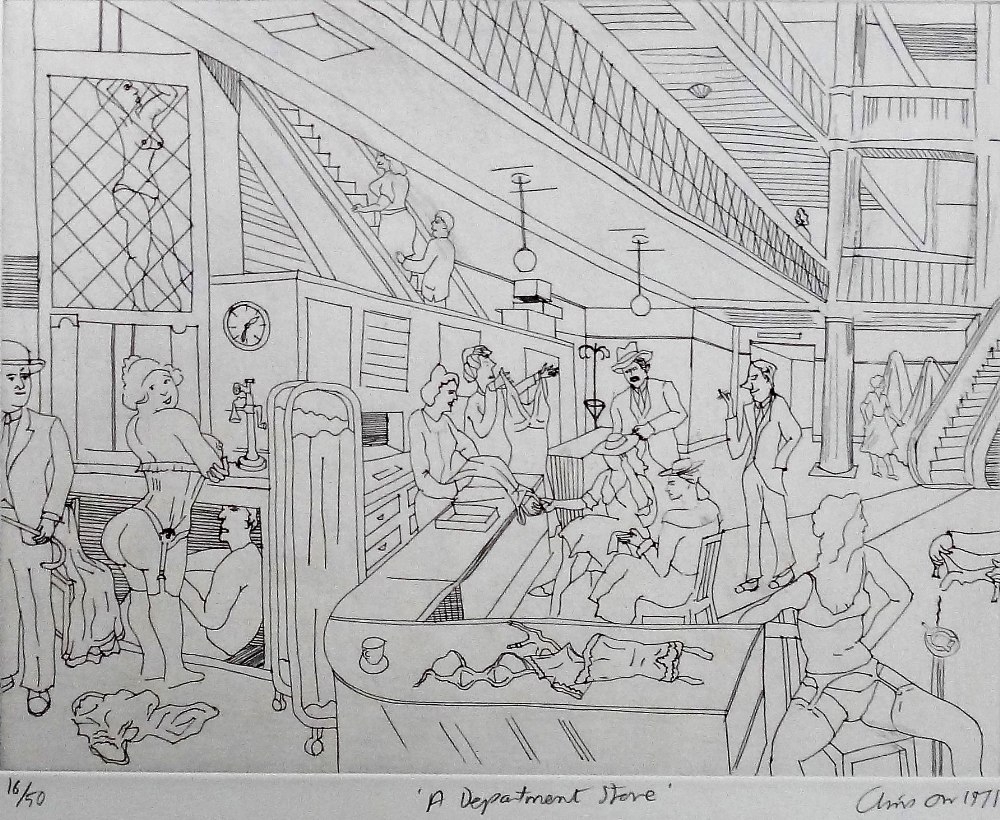 16/50
'A Department Store'
Chris Orr 1971